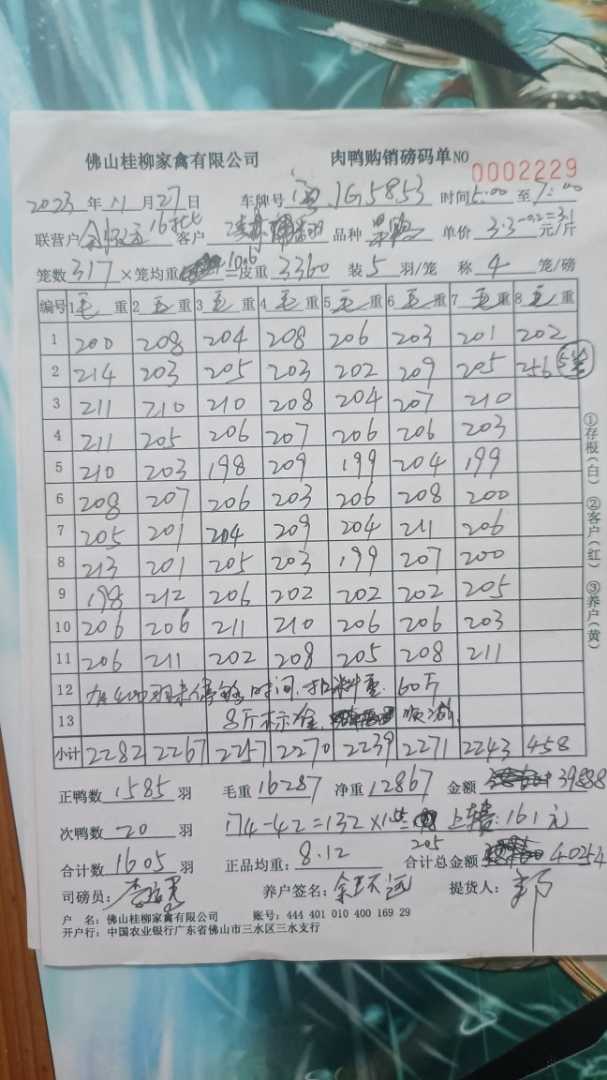 佛山桂柳家禽有限公司 肉鸭购销磅码单 NO 0002229
2023年11月27日 车牌号 粤JG5853 时间5:00至7:00
联营户 16批 客户 品种 单价 3.3-0.2=3.1元/斤
笼数317×笼均重10.6=皮重3360 装5羽/笼 称4笼/磅
编号 1毛重 2毛重 3毛重 4毛重 5毛重 6毛重 7毛重 8毛重
1 200 208 204 208 206 203 201 202
2 214 203 205 203 202 209 205 256 5笼
3 211 210 210 208 204 207 210
4 211 205 206 207 206 206 203
5 210 203 198 209 199 204 199
6 208 207 206 203 206 208 200
7 205 201 204 209 204 211 206
8 213 201 205 203 199 207 200
9 198 212 206 202 202 202 205
10 206 206 211 210 206 206 203
11 206 211 202 208 205 208 211
12 时间,扣料重 60斤
13 8斤标准
小计 2282 2267 2257 2270 2239 2271 2243 458
正鸭数1585羽 毛重16287 净重12867 金额39888
次鸭数20羽 174-42=132× 上车费:161元
205
合计数1605羽 正品均重:8.12 合计总金额40254
司磅员: 养户签名:余 远 提货人:郭
户 名:佛山桂柳家禽有限公司 账号:444 401 010 400 169 29
开户行:中国农业银行广东省佛山市三水区三水支行
①存根(白) ②客户(红) ③养户(黄)